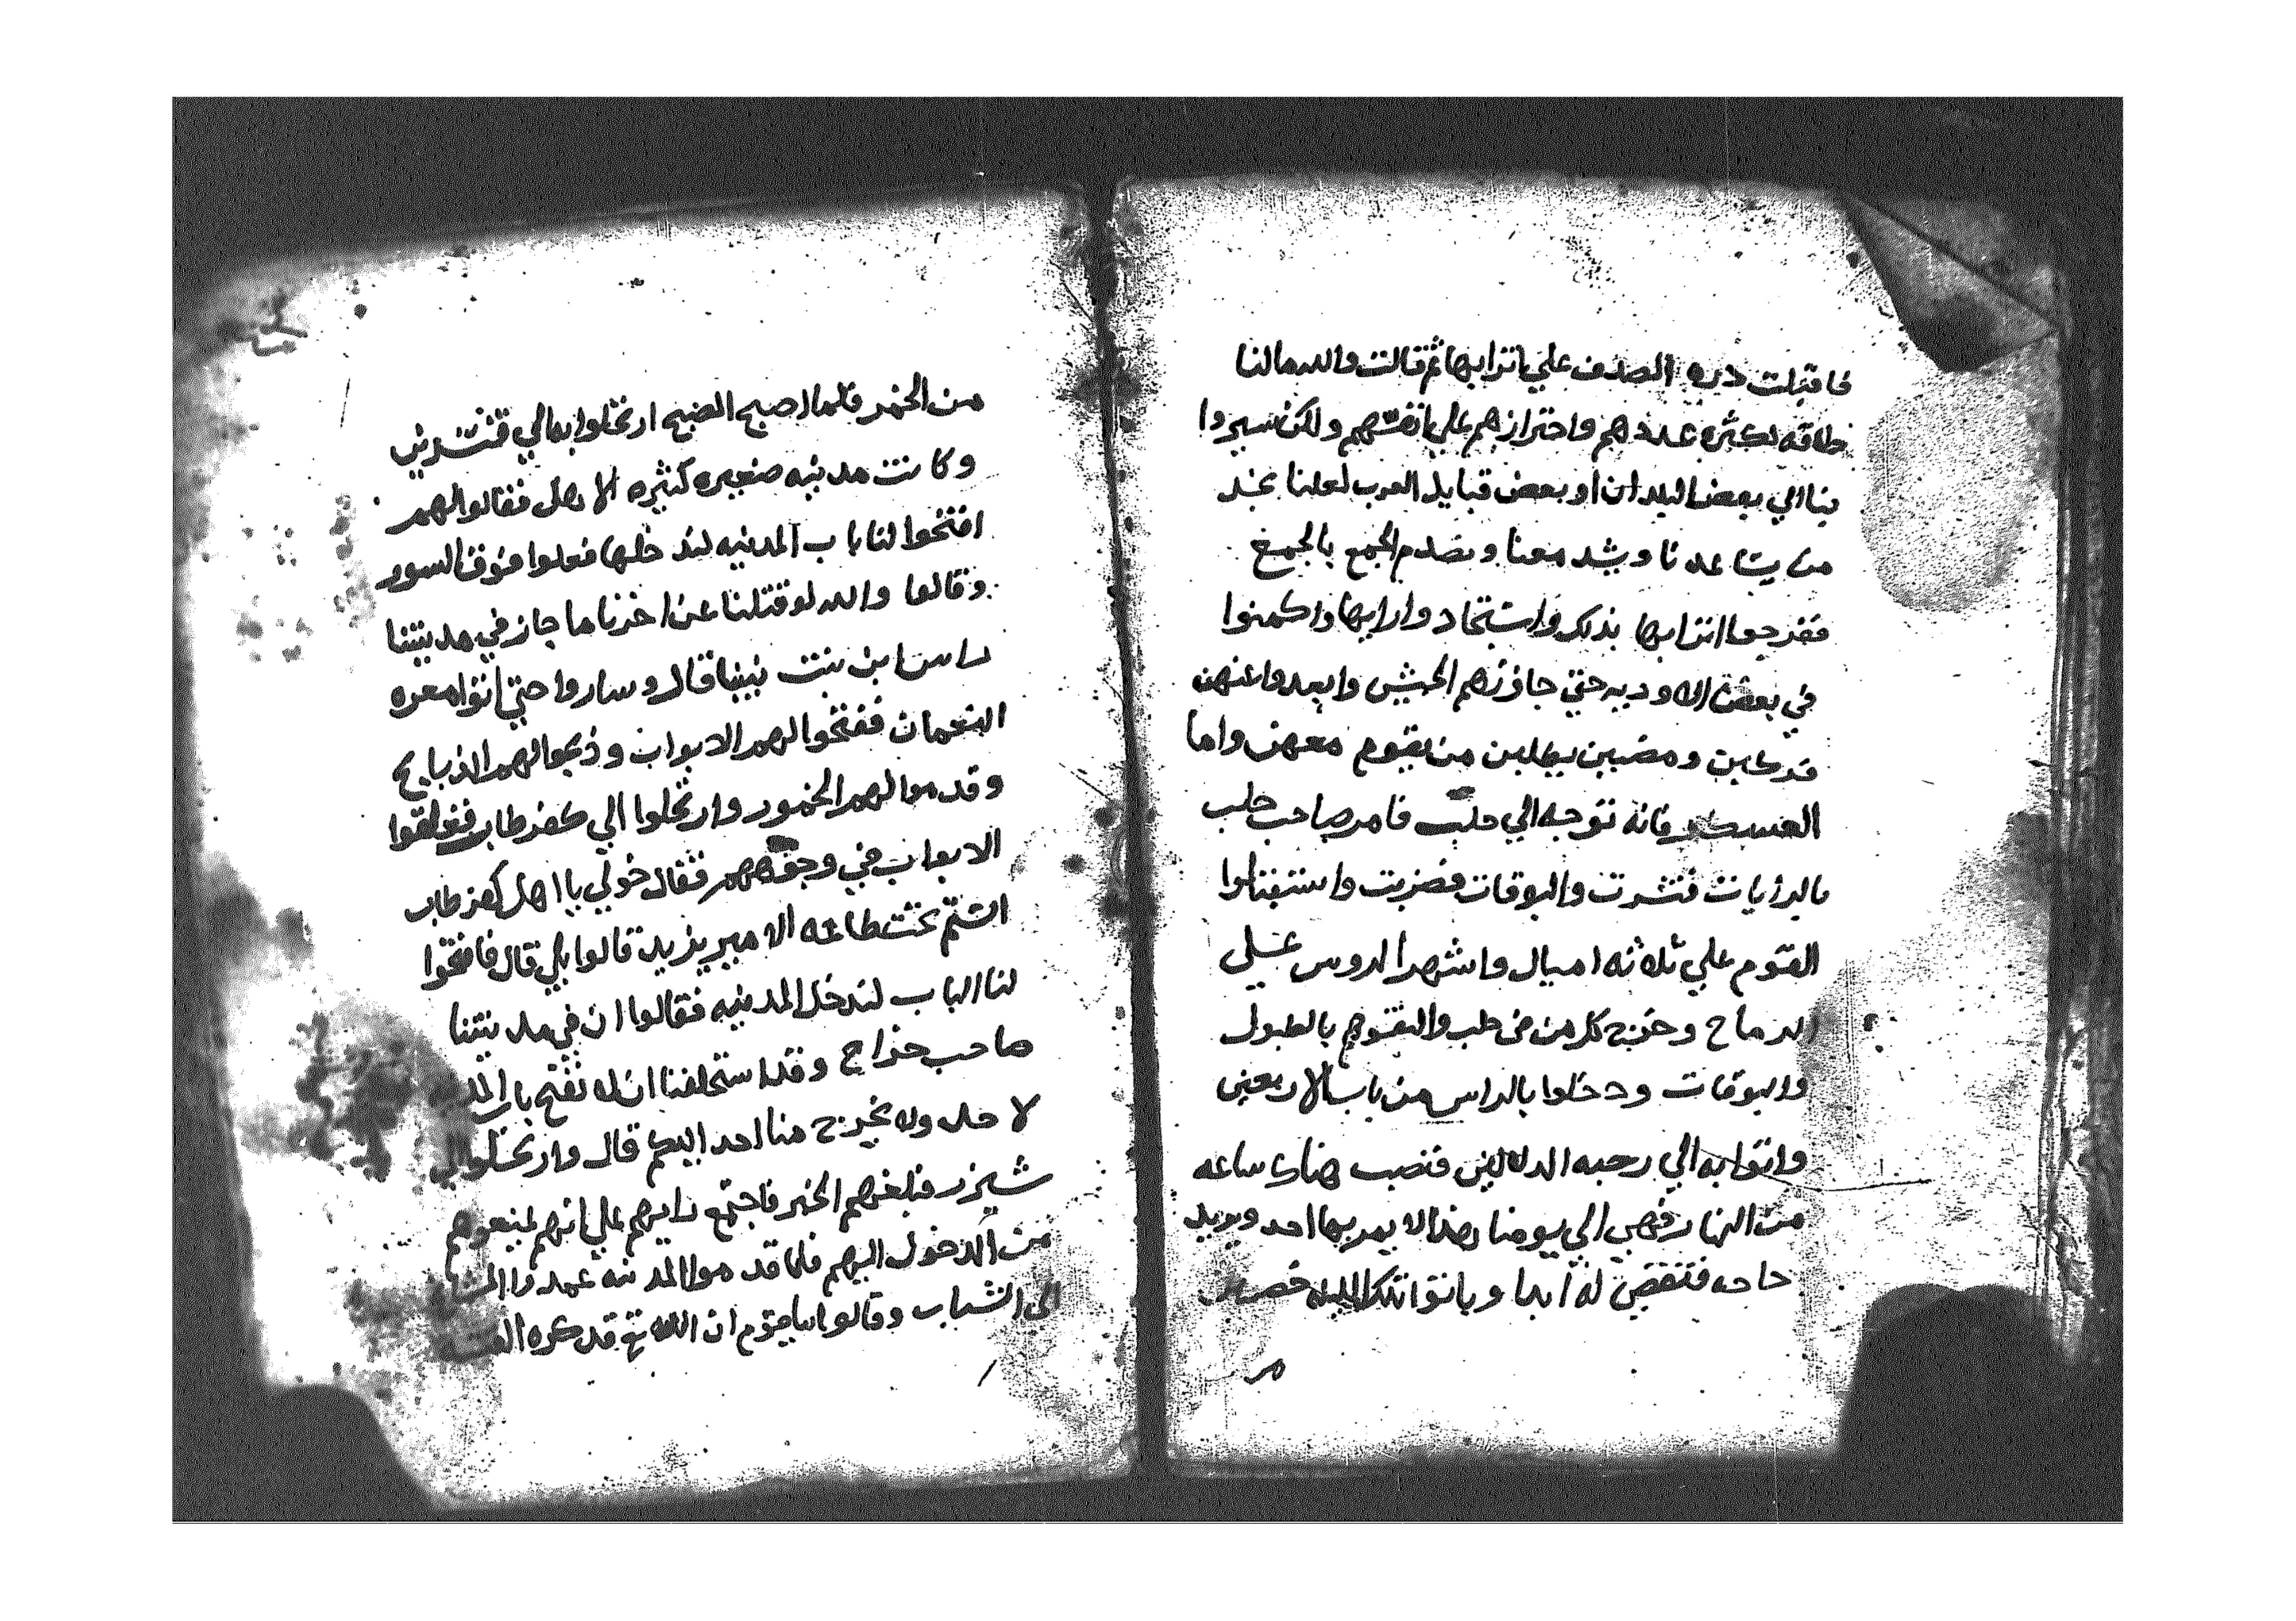 فاقبلت دره الصدف علي اترابها ثم قالت والله مالنا
طاقه لكثره عددهم واحترازهم علي انفسهم ولكن سيروا
بنا الي بعض البلدان او بعض قبايل العرب لعلنا نجد
من يساعدنا ويشد معنا ونصدم الجمع بالجمع
ففرحوا اترابها بذلك واستجادوا رايها واكمنوا
في بعض الاوديه حتي جازتهم الجيش وابعدوا عنهن
فركبن ومضين يطلبن من يقوم معهن واما
العسكر فانه توجه الي حلب فامر صاحب حلب
بالرايات فنشرت والبوقات فضربت واستقبلوا
القوم علي ثلاثه اميال واشهر الروس علي
الرماح وخرج كل من في حلب والتقوهم بالطبول
والبوقات ودخلوا بالراس من باب الاربعين
واتوا به الي رحبه الدلالين فنصب هناك ساعه
من النهار فهي الي يومنا هذا لا يمر بها احد ويريد
حاجه فتقضي له ابدا وباتوا تلك الليله
من الخمر فلما اصبح الصبح ارتحلوا به الي قنسرين
وكانت مدينه صغيره كثيره الاهل فقالوا لهم
افتحوا لنا باب المدينه لندخلها فعلوا فوق السور
وقالوا والله لو قتلنا عن اخرنا ما جاز في مدينتنا
راس ابن بنت نبينا قال وساروا حتي اتوا معره
النعمان ففتحوا لهم الابواب وذبحوا لهم الذبايح
وقدموا لهم الخمور وارتحلوا الي كفر طاب فغلقوا
الابواب في وجوههم فقال خولي يا اهل كفر طاب
الستم تحت طاعه الامير يزيد قالوا بلي قال فافتحوا
لنا الباب لندخل المدينه فقالوا ان في مدينتنا
صاحب خراج وقد استحلفنا ان لا نفتح باب
لا حد ولا يخرج منا احد اليكم قال وارتحلوا الي
شيزر فبلغهم الخبر فاجتمع رايهم علي انهم يمنعوهم
من الدخول اليهم فلما قدموا المدينه عمدوا
الي الشباب وقالوا يا قوم ان الله تع قد كره